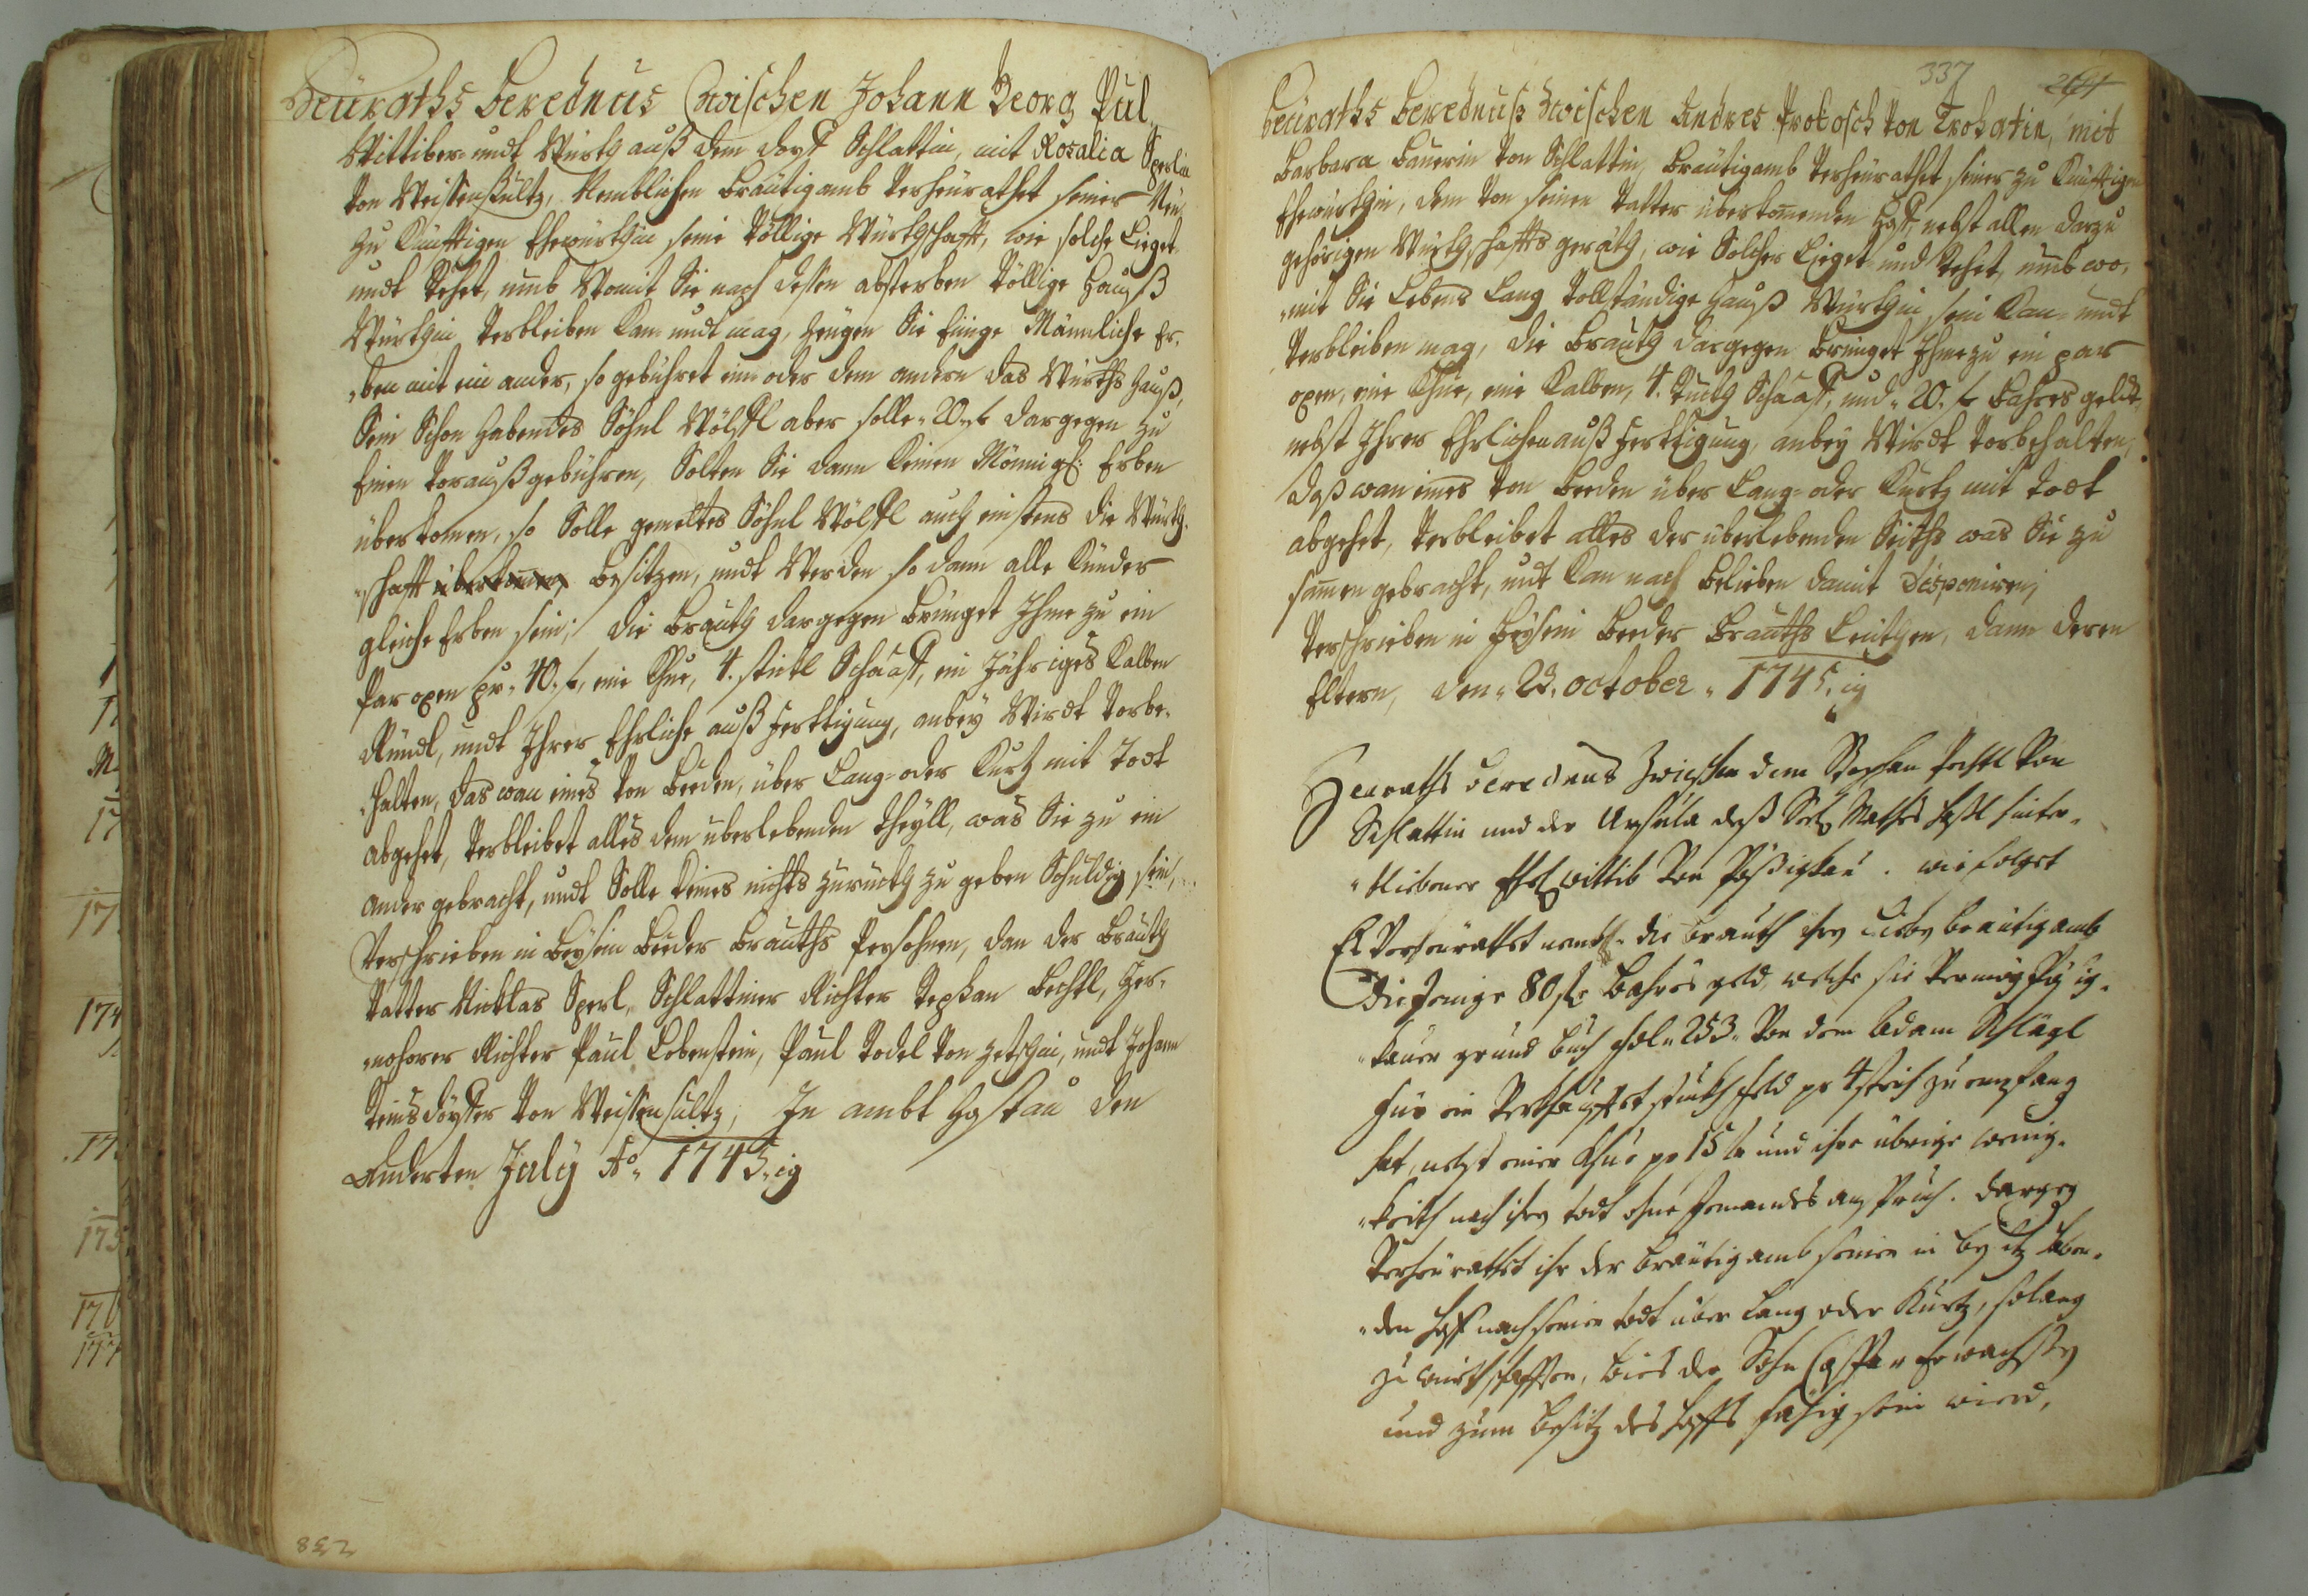 Heüraths berednus Zwischen Johann Georg Pul„
Wittiber undt Würth auß dem dorff Schlattin, mit Rosalia Sperlin
von Weissensultz, Nemblichen bräutigamb verheürathet seiner
zu Künfftigen Ehewürthin seine völlige Würthschafft, wie solche lieget
undt stehet, umb Womit Sie nach dessen absterben völlige Hauß
Würthin verbleiben kan undt mag, zeugen Sie einige Männliche Er„
„ben mit ein ander, so gebühret ein oder dem andern das Würths hauß,
Sein Schon habendes Söhnl Wölffl aber solle 20 f dargegen zu
Einen vorauß gebühren, Solten Sie dann keinen Erben
überkomen, so Solle gemeltes Söhnl Wölffl auch einstens die Würth„
„schafft besitzen, undt Werden so dann alle Kinder
gleiche Erben sein; die Brauth dargegen bringet Ihme zu ein
Par oxen pr. 40. f, eine Khue, 4. stückl Schaaff, ein Jähriges Kalben
Rindl, undt Ihrer Ehrliche auß ferttigung, anbey Wirdt vorbe„
„halten, das wan eines von beeden, über lang= oder kurtz mit Todt
abgehet, verbleibet alles dem überlebenden theyll, was Sie zu ein
ander gebracht, undt Solle keines nichts zuruckh zu geben Schuldig sein,
Verschrieben in beysein beeder brauths Persohnen, dan der brauth
Vatter Nicklas Sperl, Schlattiner Richter Stephan bechtl,
Richter Paul Lobenstein, Paul Todel von undt Johann
von Weissensultz, In ambt Hostau den
Anderten July Aō. 1745.ig
258
337
261
heüraths berednuß Zwischen Andres Prokosch von Trohatin, mit
Barbara Bauerin von Schlattin, bräutigamb verheürathet seiner zu künfftigen
Ehewürthin, dem von seinen Vatter überkomenden Hoff, nebst allen darzu
gehörigen Würthschaffts geräth, wie Solcher lieget und stehet, umb wo„
„mit Sie Lebens lang vollständige hauß Würthin sein kan undt
verbleiben mag, die brauth dargegen bringet Ihme zu ein par
oxen, eine Khue, eine Kalben, 4. stuckh Schaaff, und 20. f bahres geldt
nebst Ihrer Ehrlichen auß ferttigung, anbey Wirdt vorbehalten,
daß wan eines von beeden über lang= oder kurtz mit todt
abgehet, verbleibet alles der überlebenden Seiths was Sie zu
samen gebracht, undt kan nach belieben damit disponiren,
Verschrieben in beysein beeder brauths Leuthen, dann deren
Eltern, den 23. october 1745.ig
Heuraths berednus Zwischen dem Stephan Pechtl von
Schlattin und der Ursula deß Seel. Mathes hinter„
„bliebener Ehel. Wittib von wie folget
Es Verheürathet nembl. die brauth ihren Lieben bräutigamb
Diejenige 80 f bahres geld, welche sie vermög
grund buch fol. 253. von dem Adam Schlägl
für ein verkaufft stuckh feld pr 4 strich zu empfang
hat, nebst einer Khue pr 15 f und ihre übrige wenig„
„keith nach ihren todt ohne Jemandts anspruch. dargeg
Verheürathet ihr der bräutigamb seinen in besitz haben„
„den hoff nach seinen todt über lang oder kurtz, solang
zu würthschafften, bies der Sohn Caspar erwachsen
und zum besitz des hoffs fähig sein wird,